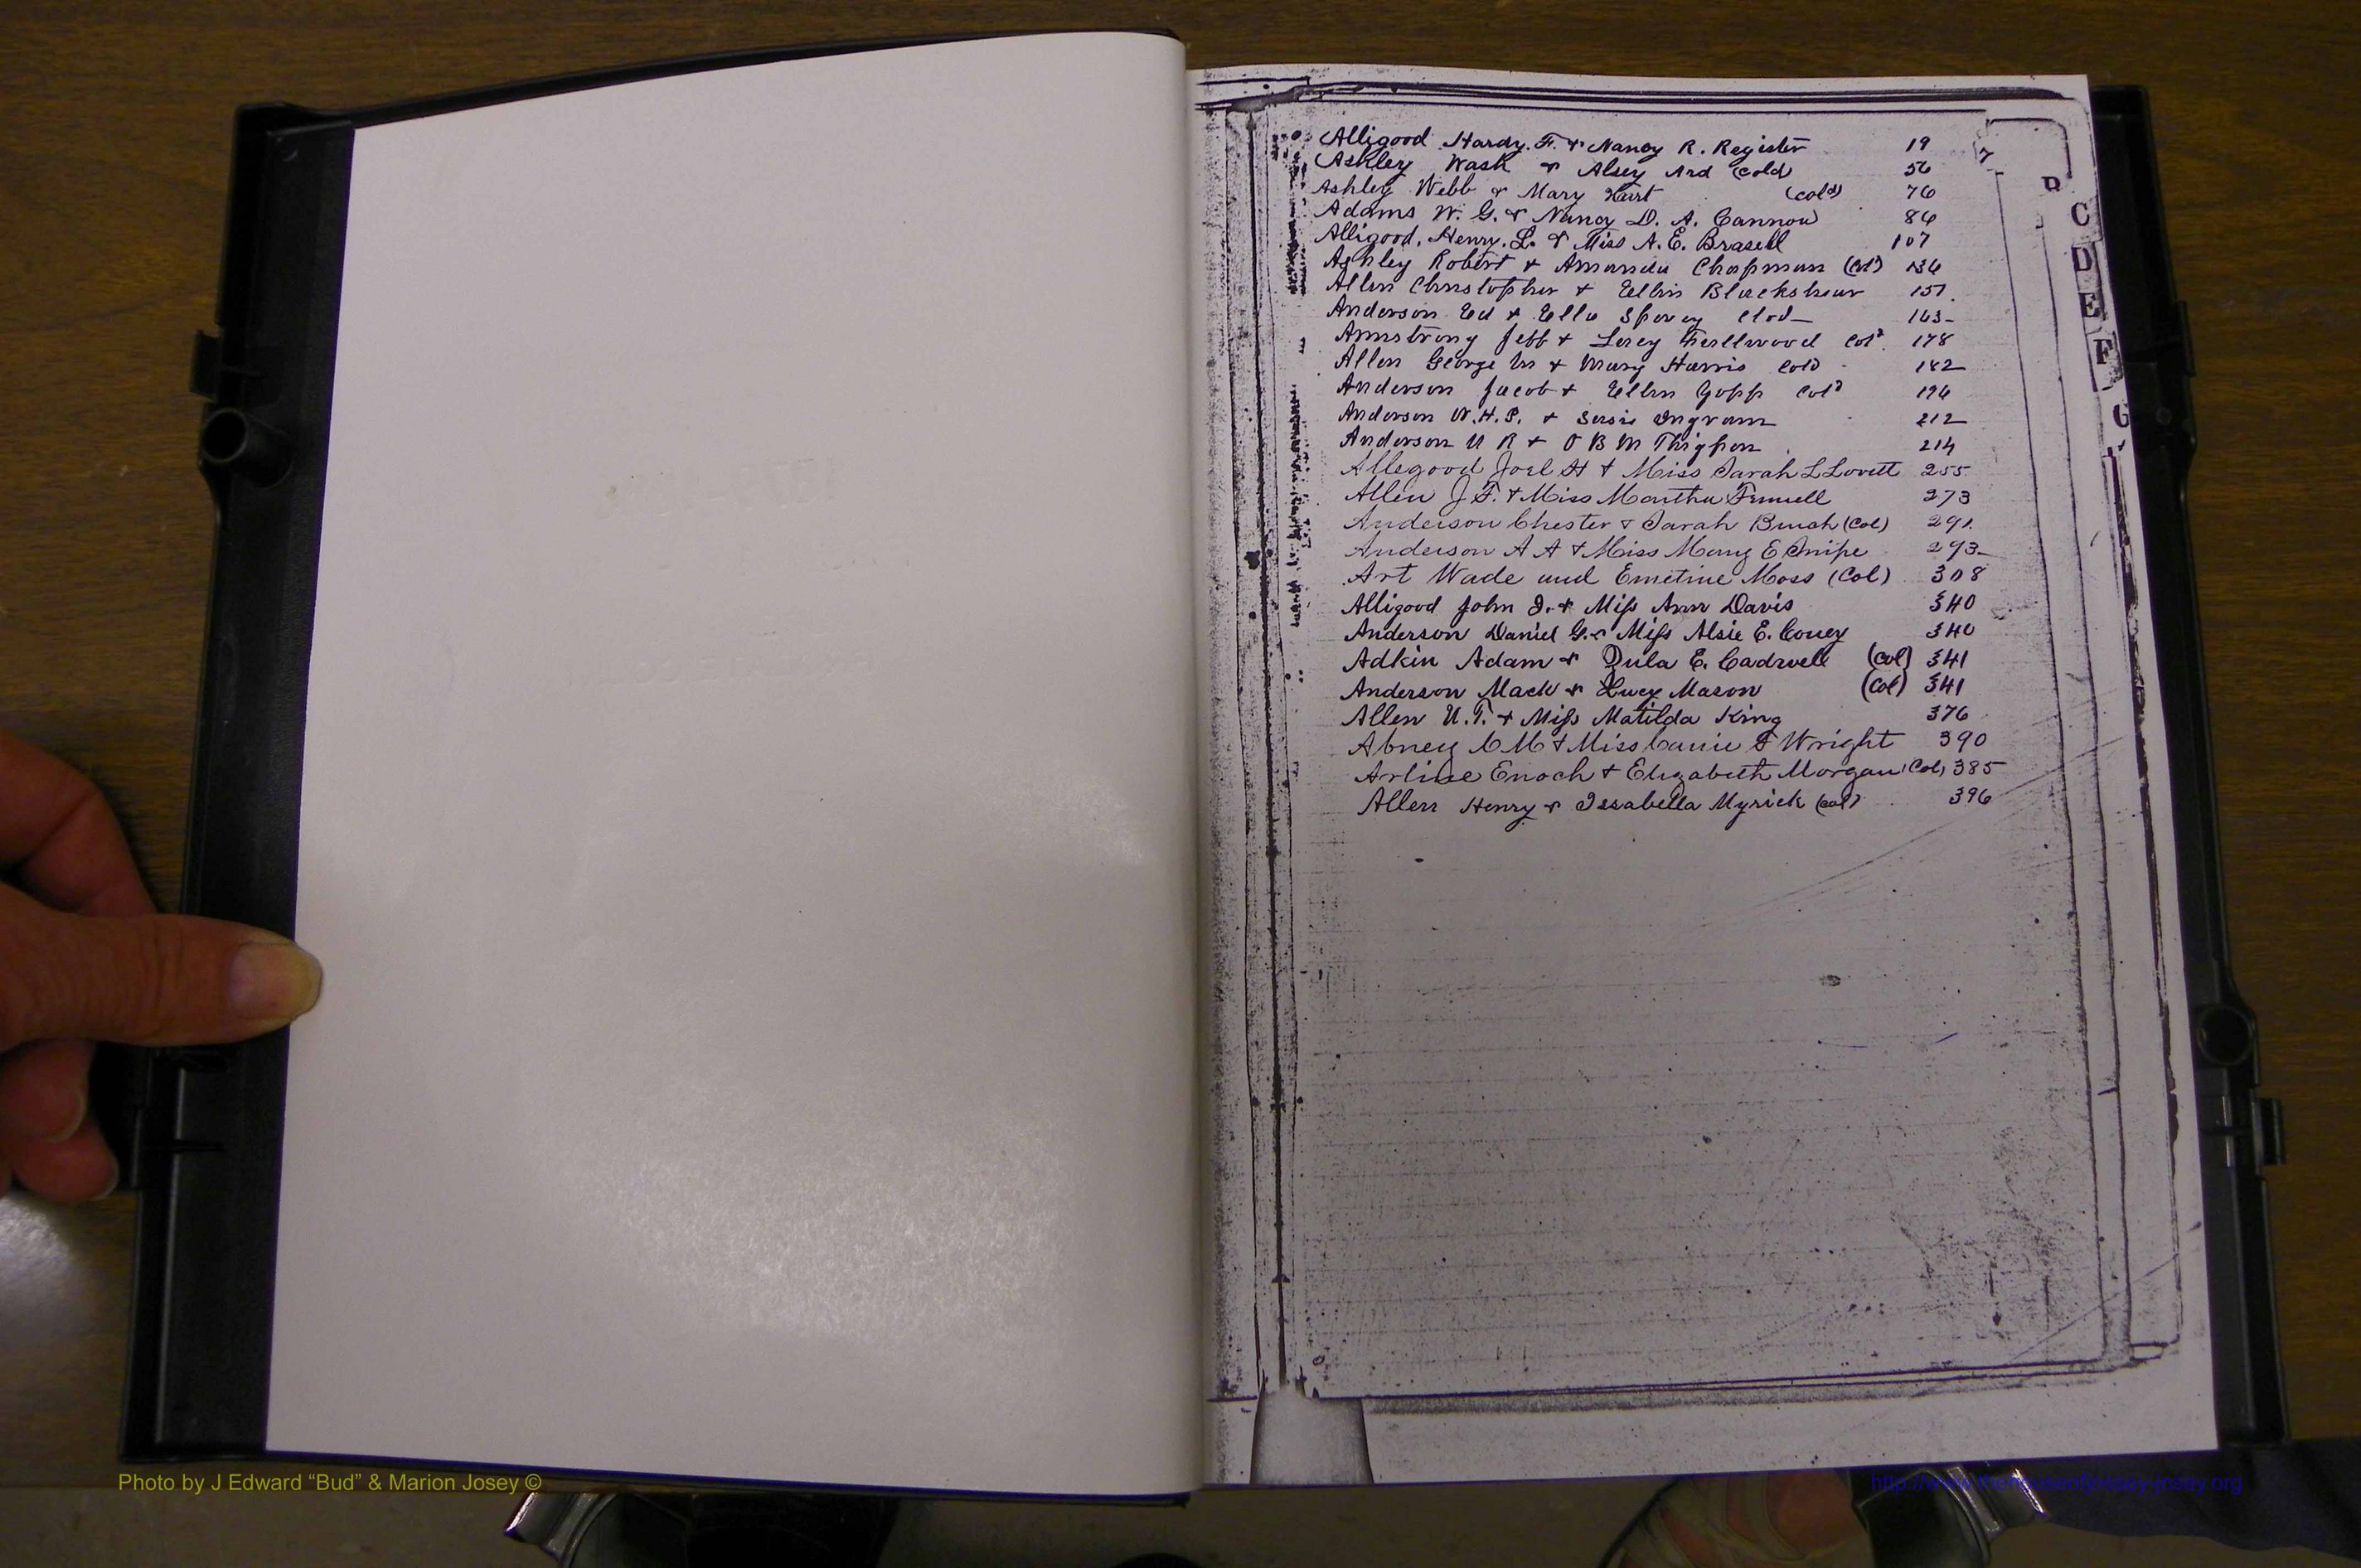 Alligood Hardy. F. & Nancy R. Register 19
Ashley Wash & Alsey Ard (Cold) 56
Ashley Webb & Mary (Cold) 76
Adams W. G. & Nancy D. A. Cannon 86
Alligood, Henry. L. & Miss A. E. Brasell 107
Ashley Robert & Amanda Chapman (Col) 136
Allen Christopher & Ellin Blackshear 151
Anderson Ed & Ella Spivey 163
Armstrong Jeff & Col 178
Allen George M & Mary Harris Cold 182
Anderson Jacob & Ellen Gopp Col 196
Anderson W. H. P. & Susie Ingram 212
Anderson U R & O B M Thigpen 214
Allegood Joel H & Miss Sarah L Lovett 255
Allen J. F. & Miss Martha 273
Anderson Chester & Sarah (Col) 291
Anderson A A & Miss Mary E Snipe 293
Art Wade and Emetine Moss (Col) 308
Alligood John J. & Miss Ann Davis 340
Anderson Daniel G. & Miss Alsie E. Couey 340
Adkin Adam & Dula E. Cadwell (Col) 341
Anderson Mack & Lucy Mason (Col) 341
Allen U. T. & Miss Matilda King 376
Abney C M & Miss Wright 390
Arline Enoch & Elizabeth Morgan (Col) 385
Allen Henry & Issabella Myrick (Col) 396
C
D
E
F
G
Photo by J Edward “Bud” & Marion Josey ©